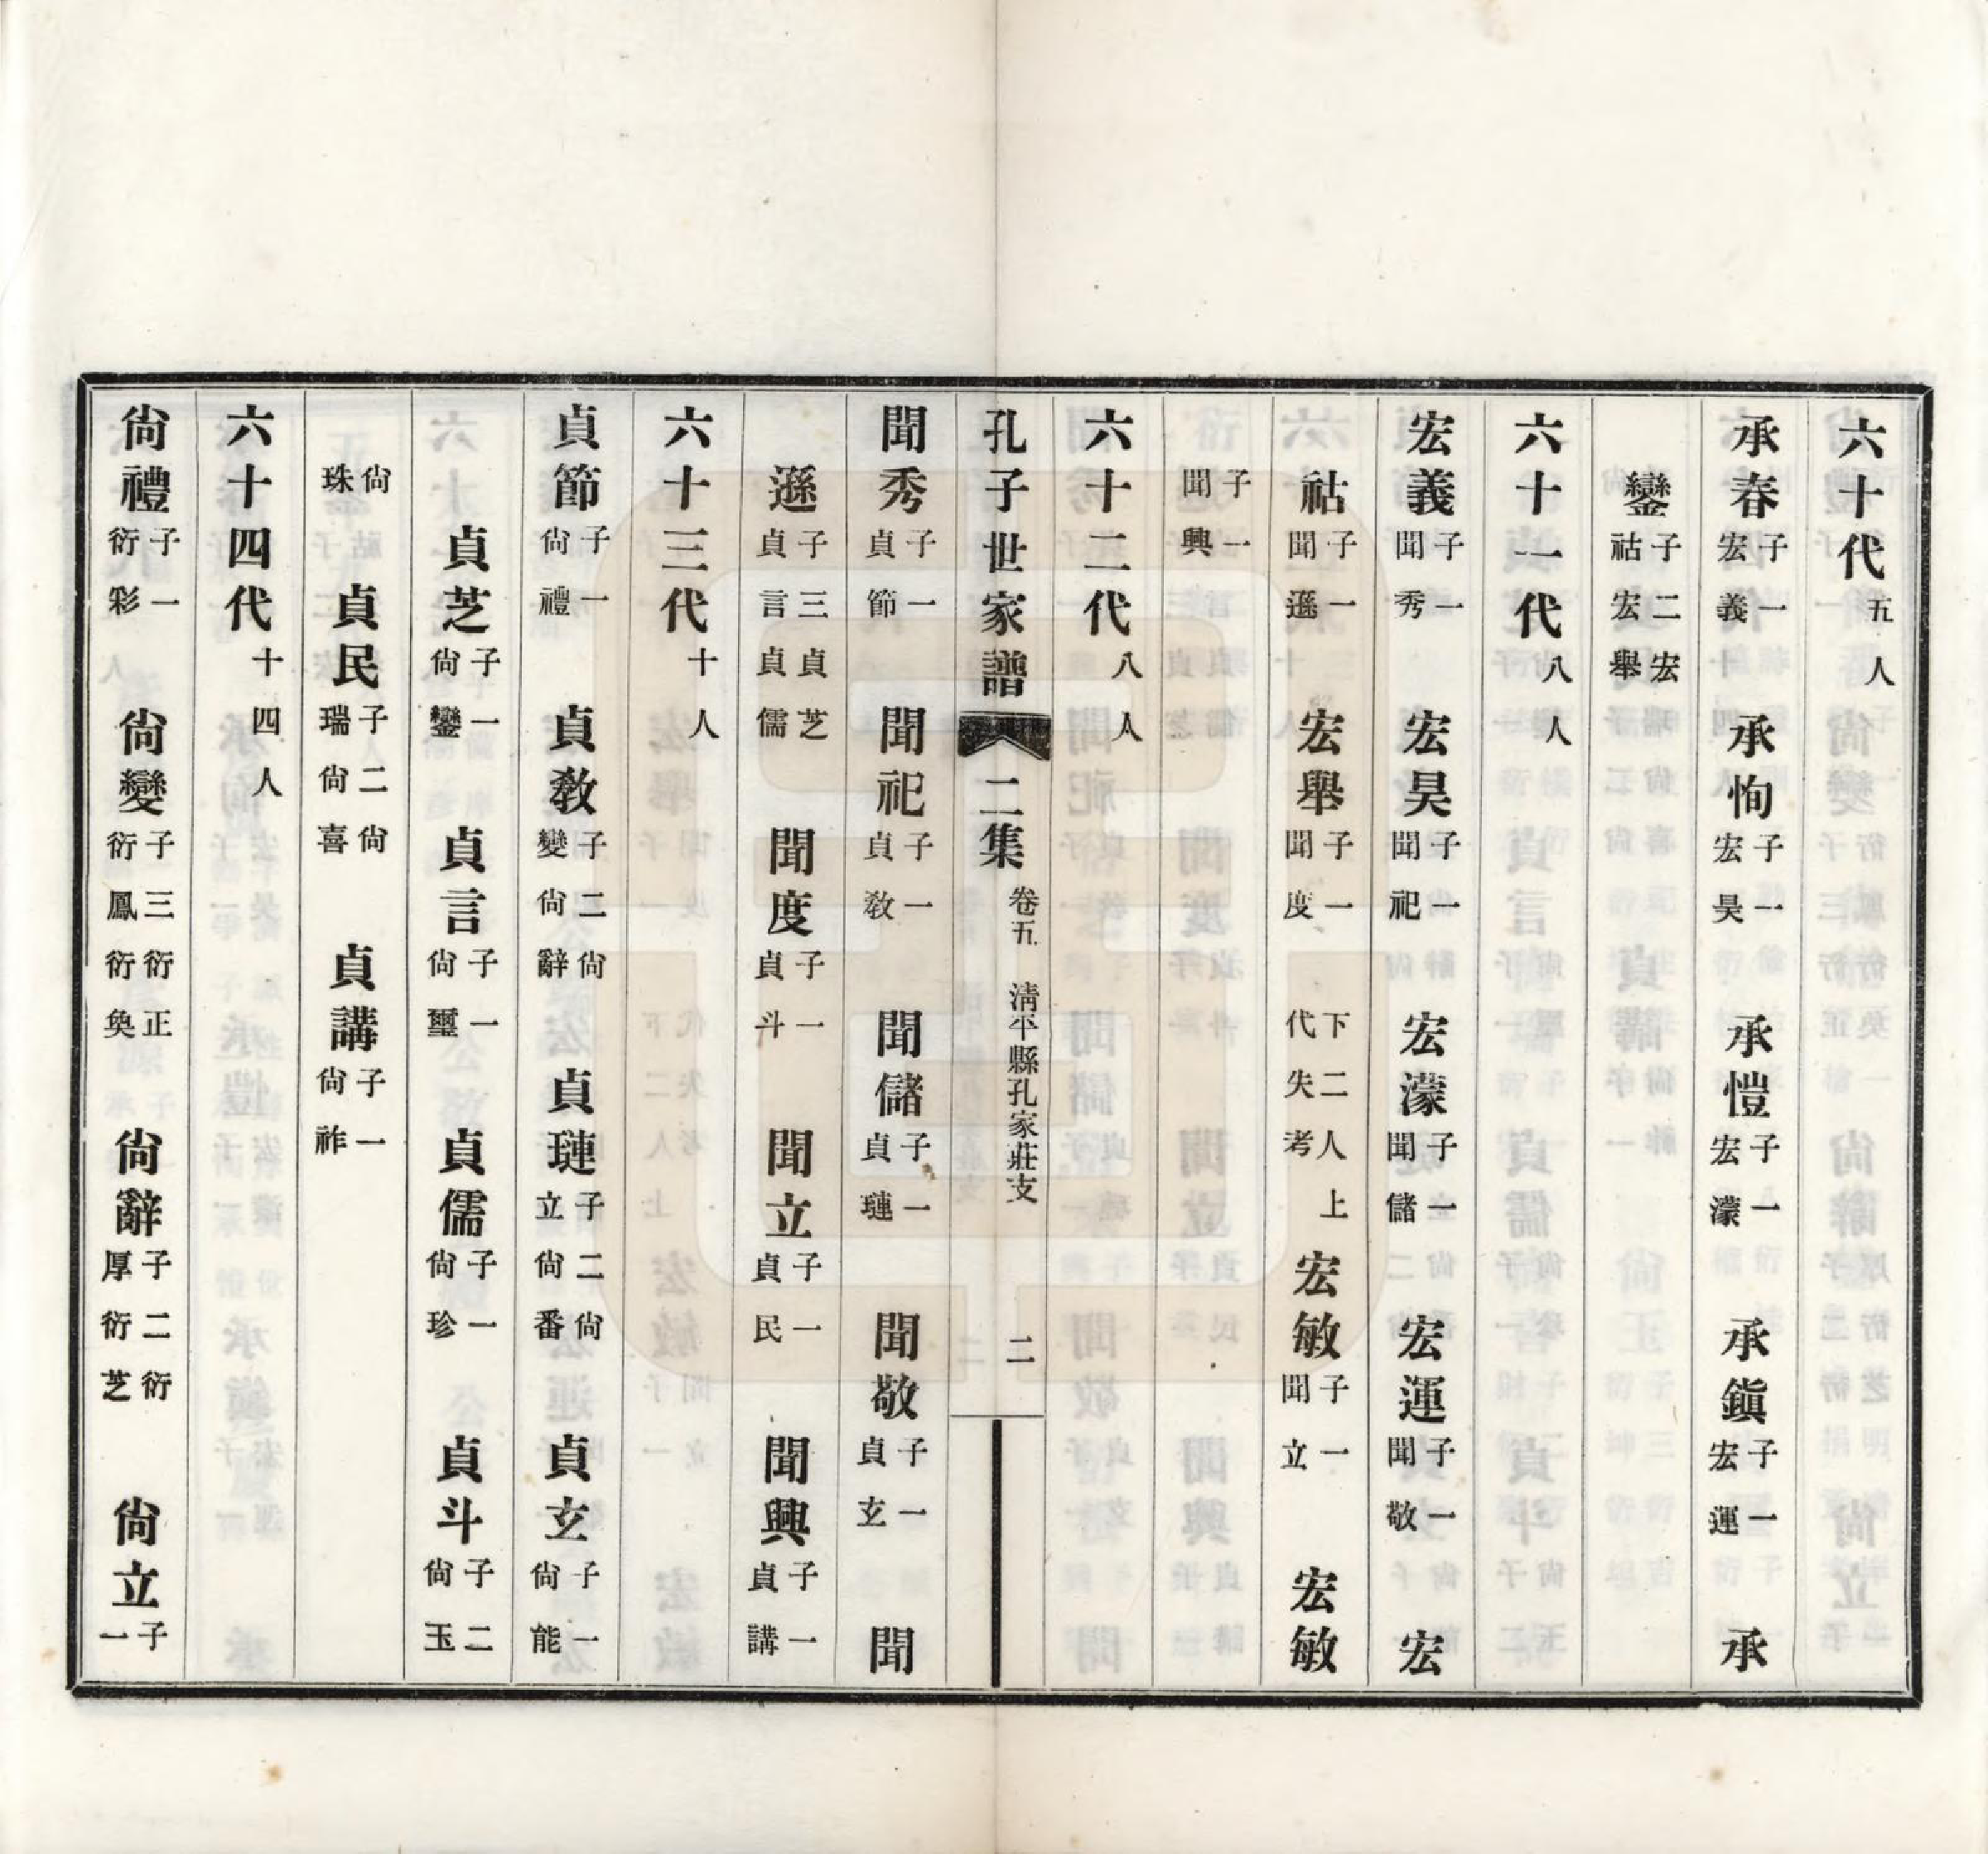 六十代五人
承春子一宏義　承恂子一宏昊　承愷子一宏濛　承鎭子一宏運　承
鑾子二宏祜宏舉
六十一代八人
宏義子一聞秀　宏昊子一聞祀　宏濛子一聞儲　宏運子一聞敬　宏
祜子一聞遜　宏舉子一聞度　下二人上代失考　宏敏子一聞立　宏敏
子一聞興
六十二代八人
孔子世家譜　二集　卷五　淸平縣孔家莊支　二
聞秀子一貞節　聞祀子一貞敎　聞儲子一貞璉　聞敬子一貞玄　聞
遜子三貞言貞芝貞儒　聞度子一貞斗　聞立子一貞民　聞興子一貞講
六十三代十人
貞節子一尙禮　貞敎子二尙變尙辭　貞璉子二尙立尙番　貞玄子一尙能
貞芝子一尙鑾　貞言子一尙璽　貞儒子一尙珍　貞斗子二尙玉
尙珠　貞民子二尙瑞尙喜　貞講子一尙祚
六十四代十四人
尙禮子一衍彩　尙變子三衍鳳衍正衍奐　尙辭子二衍厚衍芝　尙立子一